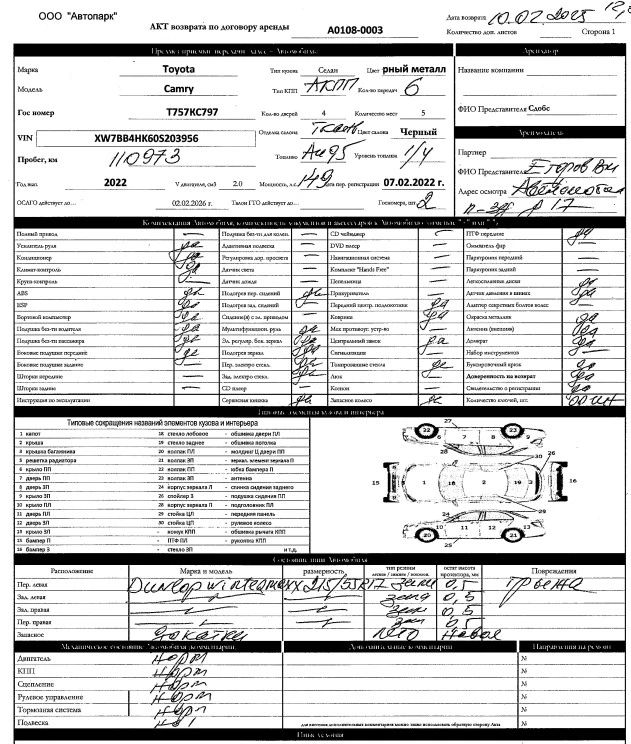 ООО "Автопарк"
АКТ возврата по договору аренды А0108-0003
Дата возврата 10.02.2025
Количество доп. листов Страница 1
Предмет приемки передачи
Автомобиль
Арендатор
Марка Toyota Тип кузова Седан Цвет рный металл
Название компании
Модель Camry Тип КПП АКПП Кол-во передач 6
Гос номер Т757КС797 Кол-во дверей 4 Количество мест 5
ФИО Представителя Сдобс
VIN XW7BB4HK60S203956 Отделка салона Ткань Цвет салона Черный
Арендодатель
Пробег, км 110973 Топливо Аи95 Уровень топлива 1/4
Партнер
ФИО Представителя Егоров
Год вып. 2022 V двигателя, см3 2.0 Мощность, л.с. 149 Дата пер. регистрации 07.02.2022 г.
Адрес осмотра
ОСАГО действует до... 02.02.2026 г. Талон ГТО действует до... Госномера, шт 2
Полный привод — Подушка без-ти для колен. — CD чейнджер — ПТФ передние да
Усилитель руля да Адаптивная подвеска — DVD плеер — Омыватель фар —
Кондиционер да Регулировка дор. просвета — Навигационная система — Парктроник передний —
Климат-контроль Датчик света — Комплект "Hands Free" — Парктроник задний —
Круиз-контроль Датчик дождя — Пепельница — Легкосплавные диски да
ABS да Подогрев пер. сидений да Прикуриватель — Датчик давления в шинах да
ESP да Подогрев зад. сидений — Передний центр. подлокотник да Адаптер секретных болтов колес —
Бортовой компьютер да Сиденье(я) с эл. приводом — Коврики да Окраска металлик да
Подушка без-ти водителя да Мультифункцион. руль да Мех противоуг. устр-во — Антенна (внешняя) да
Подушка без-ти пассажира да Эл. регулир. бок. зеркал да Центральный замок да Домкрат да
Боковые подушки передние да Подогрев зеркал да Сигнализация — Набор инструментов —
Боковые подушки задние — Пер. электро стекл. да Тонированные стекла да Буксировочный крюк да
Шторки передние — Зад. электро стекл. да Люк — Доверенность на возврат да
Шторки задние — CD плеер — Ксенон — Свидетельство о регистрации да
Инструкция по эксплуатации — Сервисная книжка да Запасное колесо да Количество ключей, шт.
Типовые элементы кузова и интерьера
Типовые сокращения названий элементов кузова и интерьера
1 капот 18 стекло лобовое - обшивка двери ПЛ
2 крыша 19 стекло заднее - обшивка потолка
3 крышка багажника 20 колпак ПЛ - молдинг Ц двери ПП
4 решетка радиатора 21 колпак ЗЛ - зеркал. элемент зеркала П
6 крыло ПП 22 колпак ПП - юбка бампера П
7 дверь ПП 23 колпак ЗП - антенна
8 дверь ЗП 24 корпус зеркала Л - спинка сидения заднего
9 крыло ЗП 26 спойлер З - подушка сидения ПП
10 крыло ПЛ 28 корпус зеркала П - подголовник ПЛ
11 дверь ПЛ 29 стойка ЦЛ - передняя панель
12 дверь ЗЛ 30 стойка ЦП - рулевое колесо
13 крыло ЗЛ - кожух КПП - обшивка рычага КПП
15 бампер П - ПТФ ПЛ - рукоятка КПП
16 бампер З - стекло ЗП и т.д.
Состояние шин Автомобиля
Расположение Марка и модель размерность тип резины летние / зимние / всесезон. остат высота протектора, мм Повреждения
Пер. левая Dunlop wintermaxx 215/55R17 зим 0,5
Зад. левая зим 0,5
Зад. правая зим 0,5
Пер. правая зим 0,5
Запасное докатка лето новое
Механическое состояние Автомобиля (комментарии) Дополнительные комментарии Направления на ремонт
Двигатель норм №
КПП норм №
Сцепление норм №
Рулевое управление норм №
Тормозная система норм №
Подвеска №
для внесения дополнительных комментариев можно также использовать обратную сторону Акта